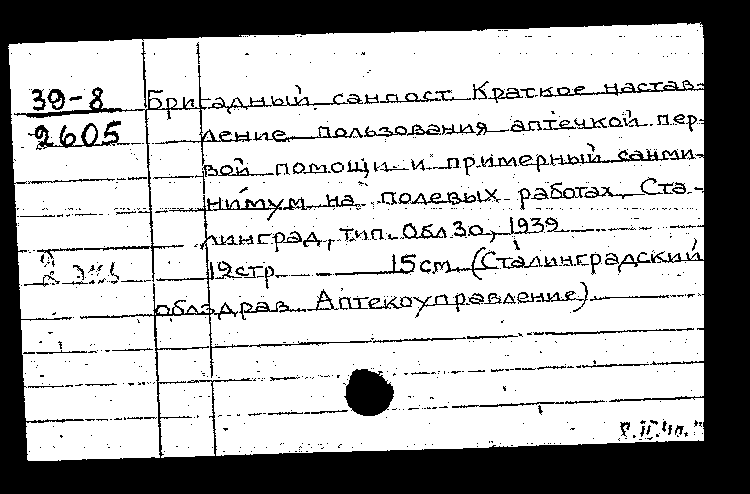 39-8
2605
Бригадный санпост. Краткое настав-
ление пользования аптечкой пер-
вой помощи и примерный санми-
нимум на полевых работах. Ста-
линград, тип. ОблЗО, 1939
12стр 15см. (Сталинградский
облздрав. Аптекоуправление).
2 экз